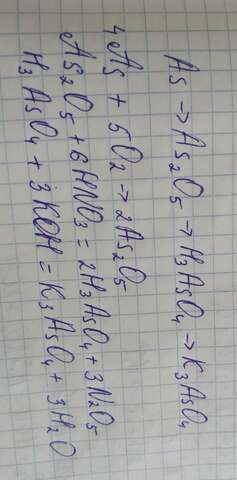 As → As₂O₅ → H₃AsO₄ → K₃AsO₄
4As + 5O₂ → 2As₂O₅
As₂O₅ + 6HNO₃ = 2H₃AsO₄ + 3N₂O₅
H₃AsO₄ + 3KOH = K₃AsO₄ + 3H₂O